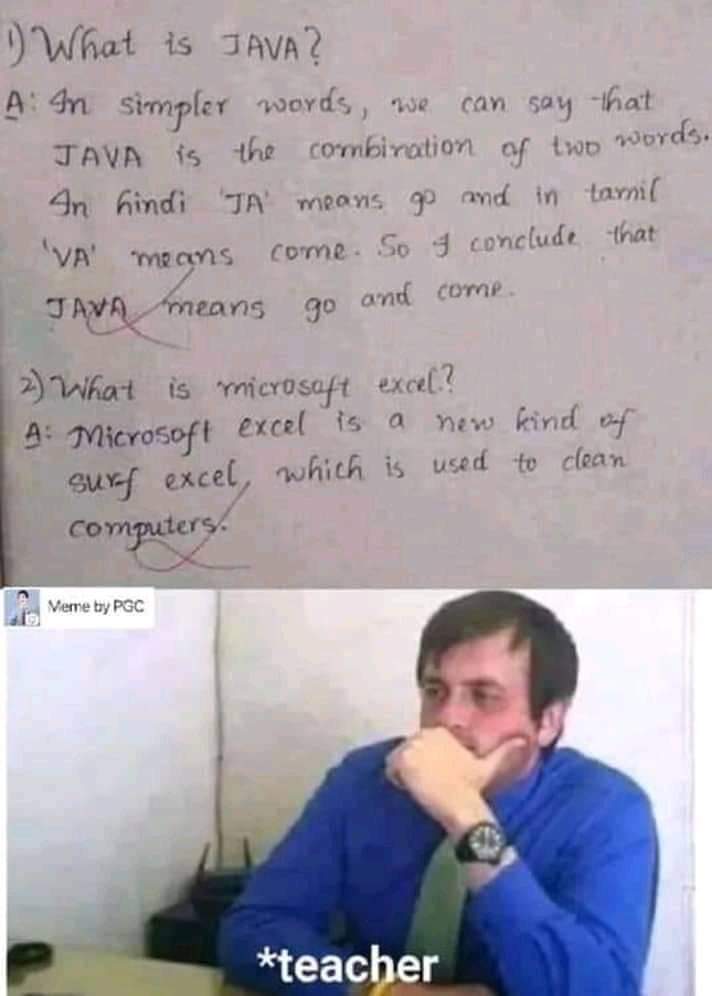 1) What is JAVA?
A: In simpler words, we can say that
JAVA is the combination of two words.
In hindi 'JA' means go and in tamil
'VA' means come. So I conclude that
JAVA means go and come.
2) What is microsoft excel?
A: Microsoft excel is a new kind of
surf excel, which is used to clean
computers.
Meme by PGC
*teacher